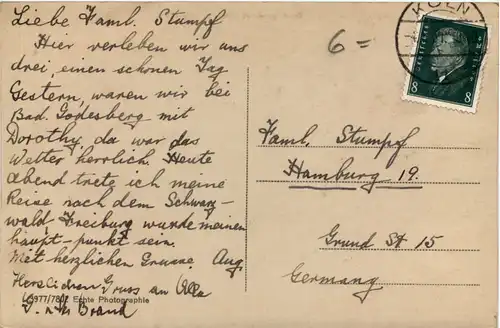 Liebe Faml. Stumpf
Hier verleben wir uns
drei, einen schönen Tag
Gestern, waren wir bei
Bad. Godesberg mit
Dorothy, da war das
Wetter herrlich. Heute
abend trete ich meine
Reise nach dem Schwarz-
wald Freiburg wurde meinen
haupt-punkt sein.
Met herzlichen Grusse. Aug.
Herzlichen Gruss an Alle
Brand
6977/78 Echte Photographie
6=
KÖLN
8 8
Faml. Stumpf
Hamburg 19.
Grund St 15
Germany